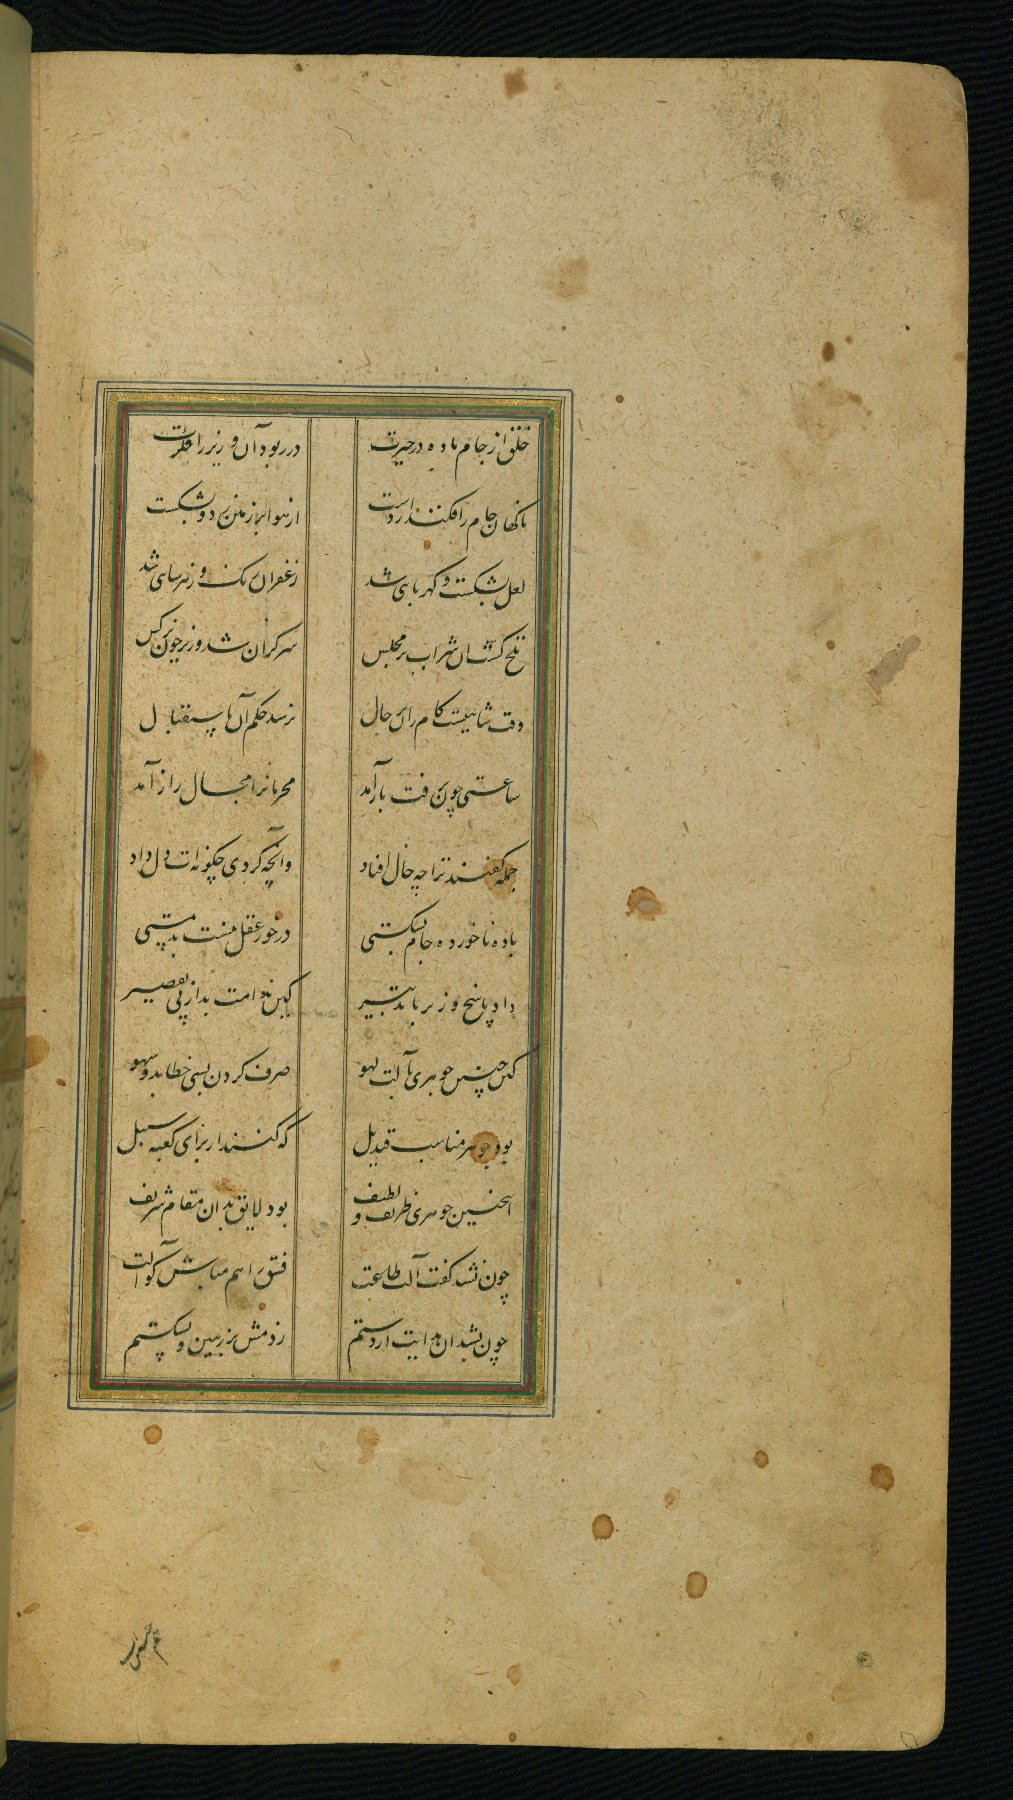 خلق از جام باده در حیرت
در ربود آن وزیر را غیرت
ناگهان جام را فکند از دست
از هوا بر زمین زد و بشکست
لعل بشکست و کهربایی شد
زعفران رنگ و زمرسای شد
تلخ گشت آن شراب بر مجلس
سر گران شد وزیر چون نرگس
وقت شانیست کام ران حال
نرسد حکم آن باستقبال
ساعتی چون برفت باز آمد
محرمانرا مجال راز آمد
جمله گفتند ترا چه حال افتاد
وآنچه کردی چگونه ات دل داد
باده ناخورده جام بشکستی
در خور عقل نیست بدمستی
داد پاسخ وزیر با تدبیر
کین ندامت بد از پی تقصیر
کین چنین جوهری بآلت لهو
صرف کردن بسی خطا بد و سهو
بود جوهر مناسب قندیل
که کنند از برای کعبه سبیل
اینچنین جوهری ظریف و لطیف
بود لایق بدان مقام شریف
چون نشد گفت آلت طاعت
فسق را هم مباش گو آلت
چون نشد آن بدایت از دستم
زدمش بر زمین و بشکستم